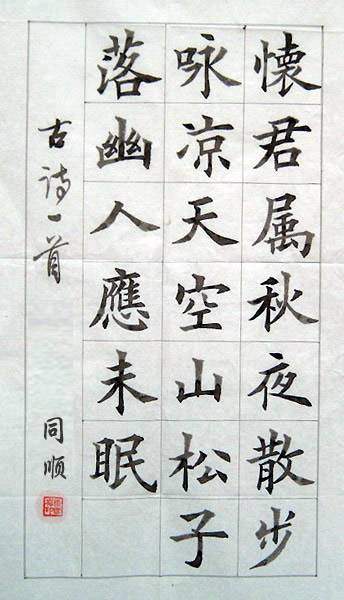 懷君属秋夜散步
咏凉天空山松子
落幽人應未眠
古诗一首
同顺